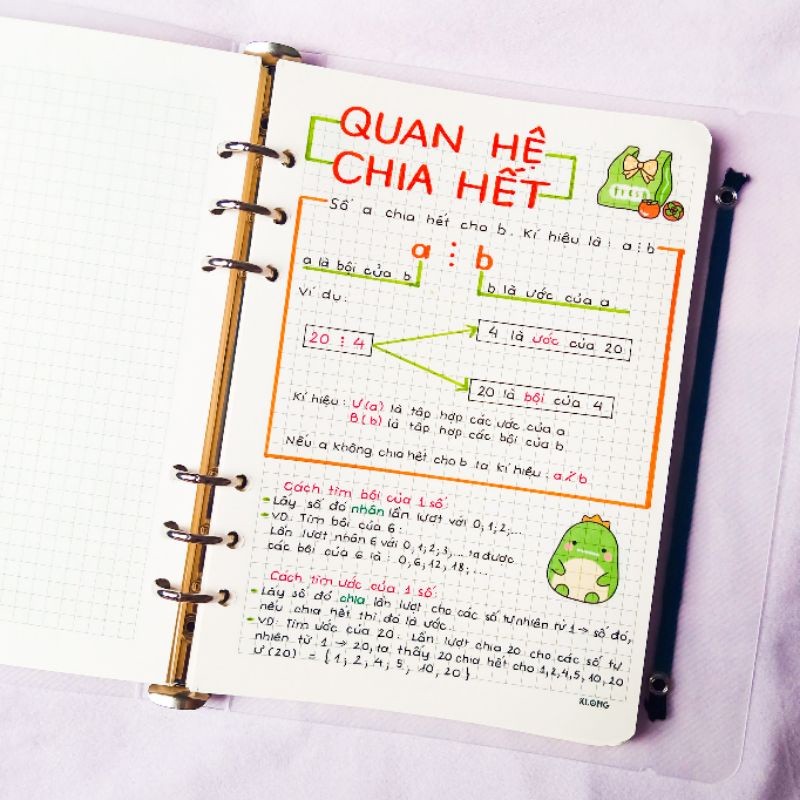 QUAN HỆ
CHIA HẾT
fresh
Số a chia hết cho b. Kí hiệu là : a ⋮ b
a ⋮ b
a là bội của b
b là ước của a
Ví dụ:
20 ⋮ 4
4 là ước của 20
20 là bội của 4
Kí hiệu : Ư(a) là tập hợp các ước của a
B(b) là tập hợp các bội của b
Nếu a không chia hết cho b ta kí hiệu : a ⋮̸ b
Cách tìm bội của 1 số:
- Lấy số đó nhân lần lượt với 0; 1; 2;...
- VD: Tìm bội của 6 :
Lần lượt nhân 6 với 0; 1; 2; 3;... ta được
các bội của 6 là : 0; 6; 12; 18; ...
Cách tìm ước của 1 số:
- Lấy số đó chia lần lượt cho các số tự nhiên từ 1 → số đó,
nếu chia hết thì đó là ước.
- VD: Tìm ước của 20. Lần lượt chia 20 cho các số tự
nhiên từ 1 → 20, ta thấy 20 chia hết cho 1, 2, 4, 5, 10, 20
Ư(20) = { 1; 2; 4; 5; 10; 20 }
KLONG